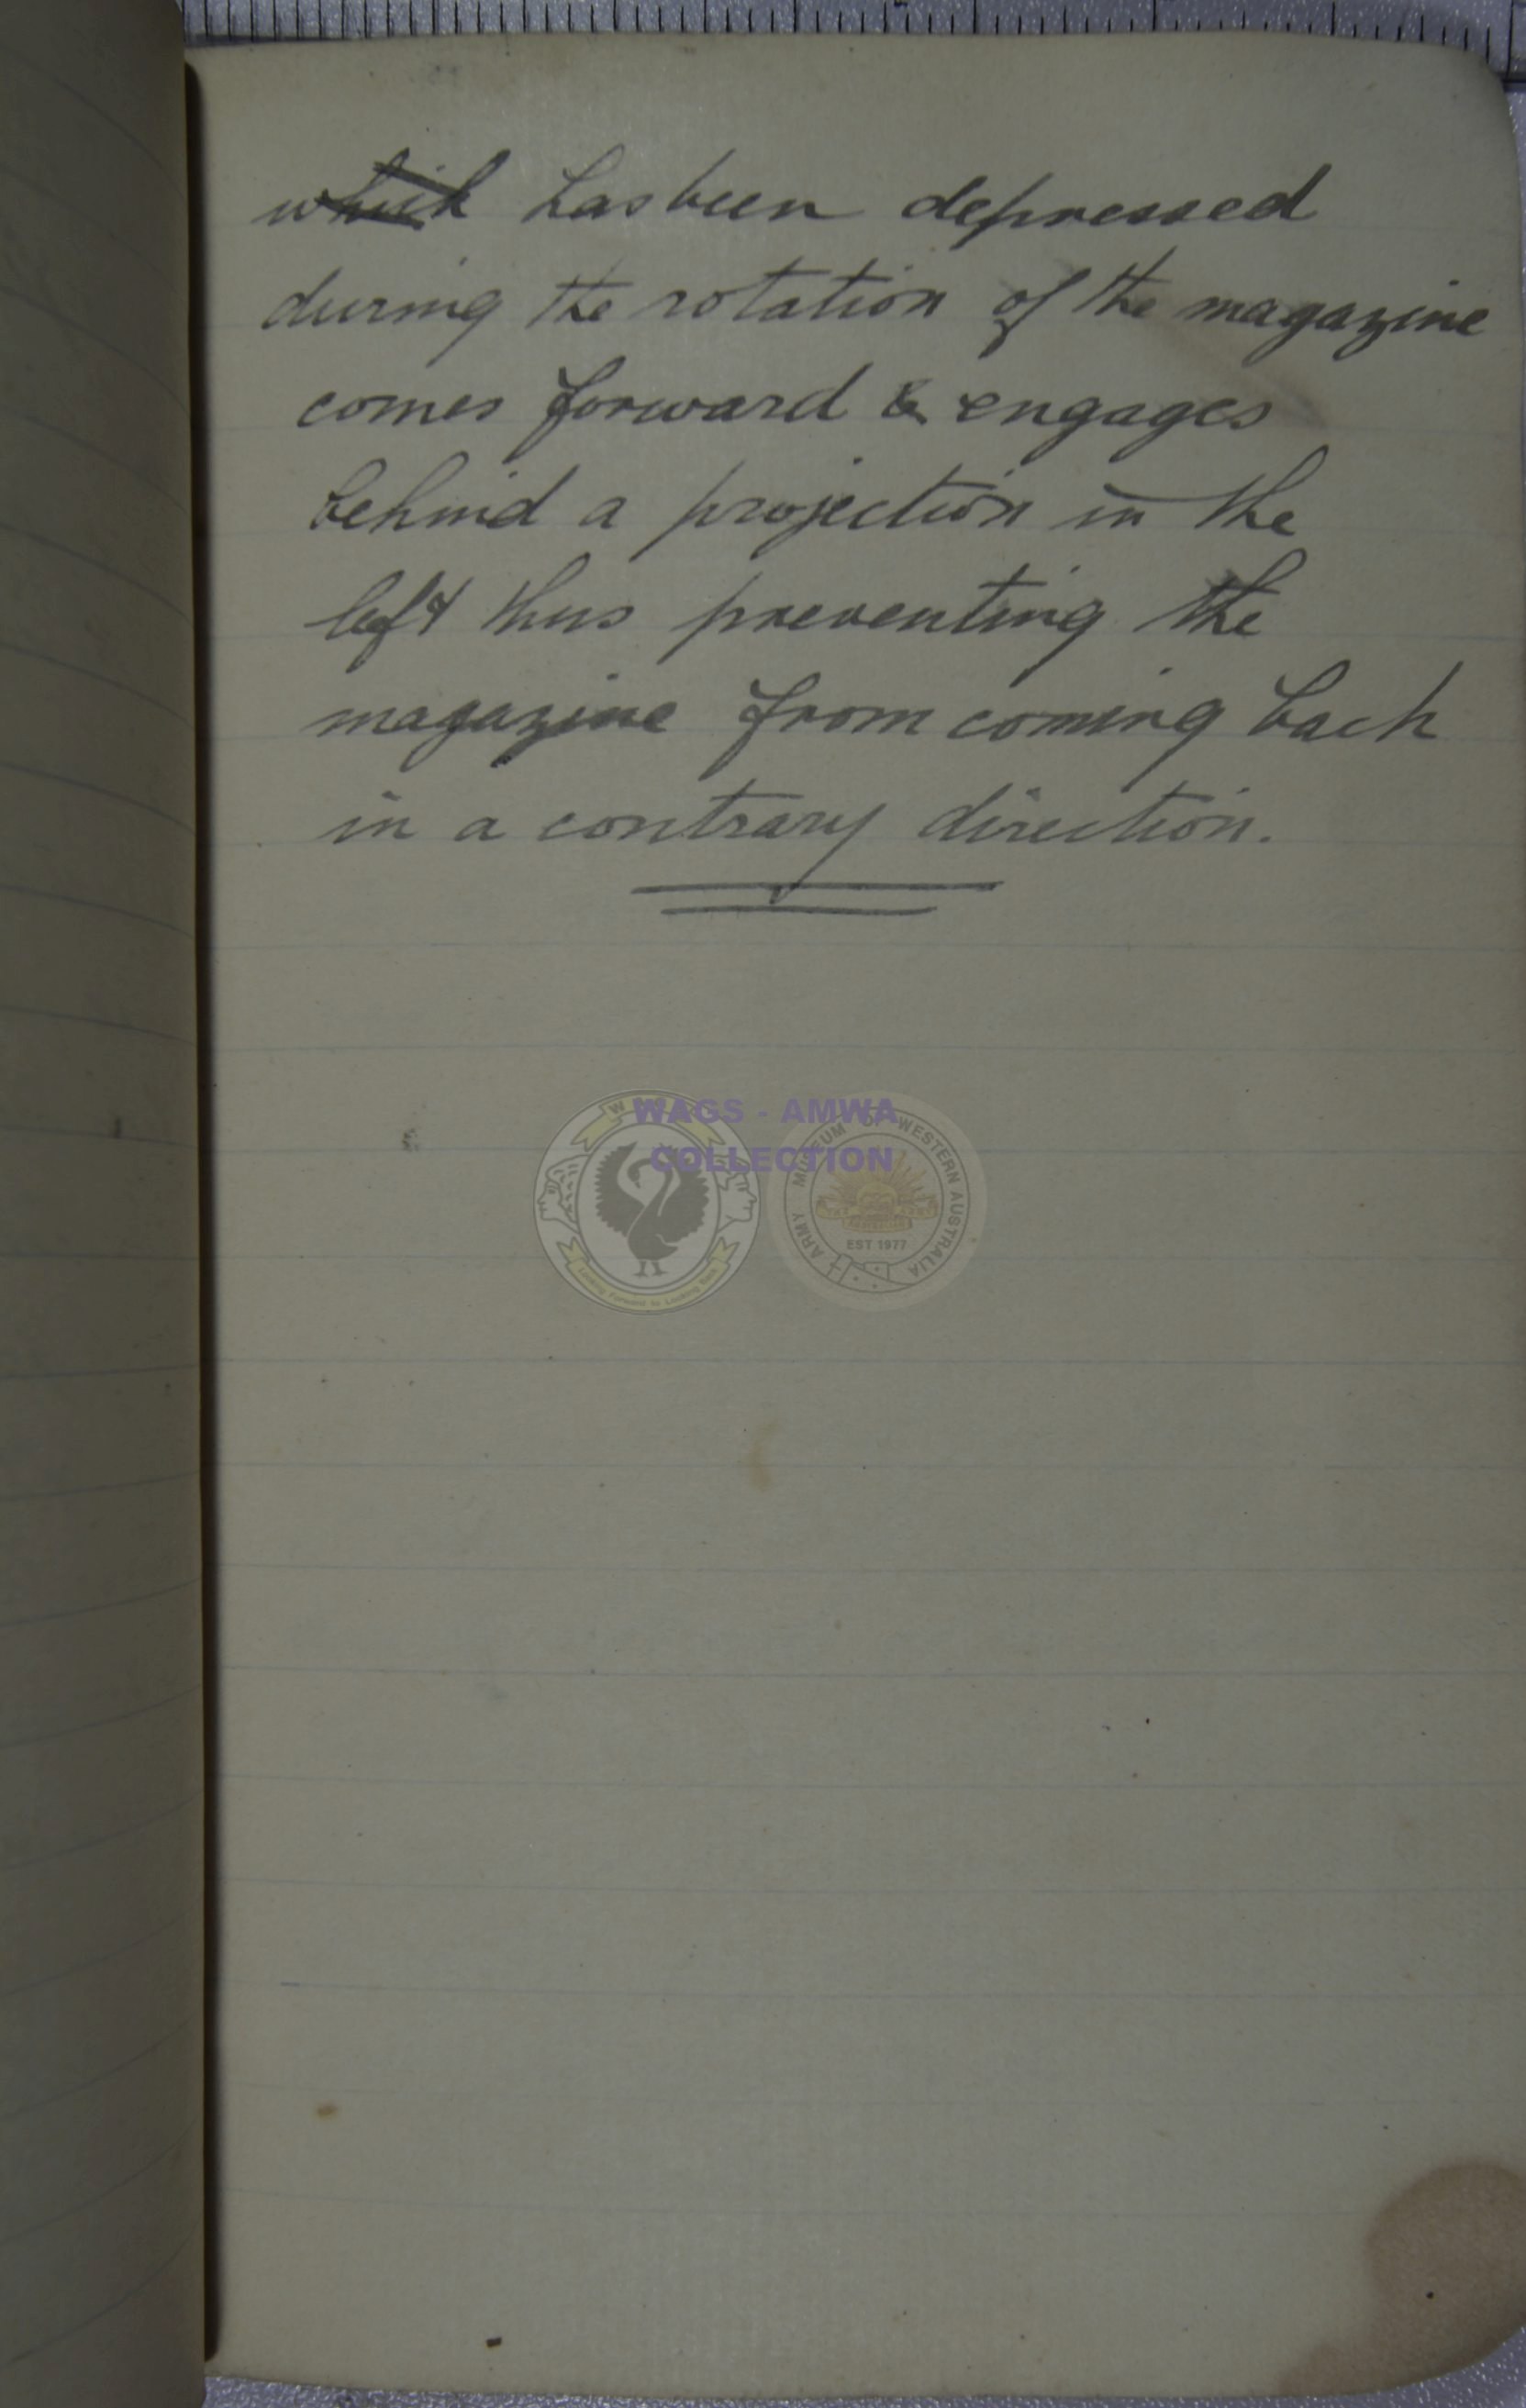 which has been depressed
during the rotation of the magazine
comes forward & engages
behind a projection in the
left thus preventing the
magazine from coming back
in a contrary direction.
WAGS - AMWA
COLLECTION
ARMY MUSEUM OF WESTERN AUSTRALIA
EST 1977
Looking Forward to Looking Back